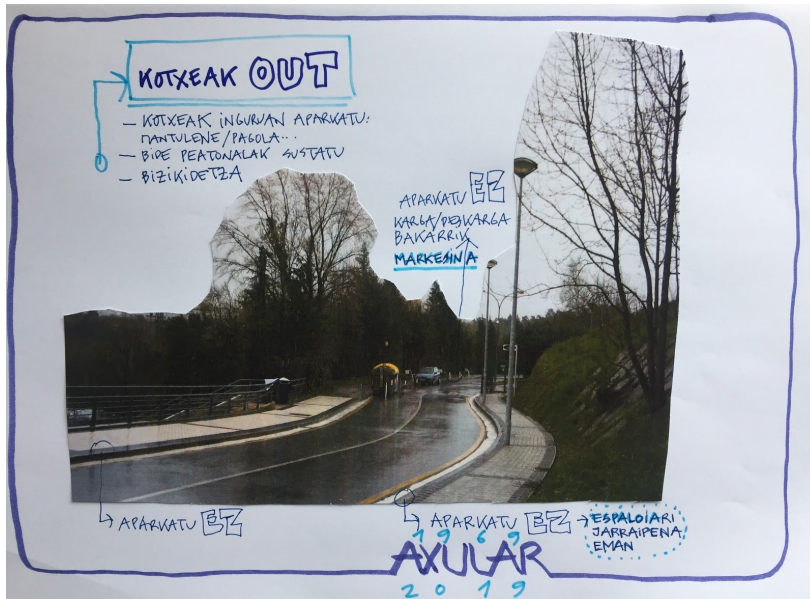 KOTXEAK OUT
– KOTXEAK INGURUAN APARKATU:
MANTULENE/PAGOLA...
– BIDE PEATONALAK SUSTATU
– BIZIKIDETZA
APARKATU EZ
KARGA/DESKARGA
BAKARRIK
MARKESINA
APARKATU EZ
APARKATU EZ → ESPALOIARI
JARRAIPENA
EMAN
1969
AXULAR
2019